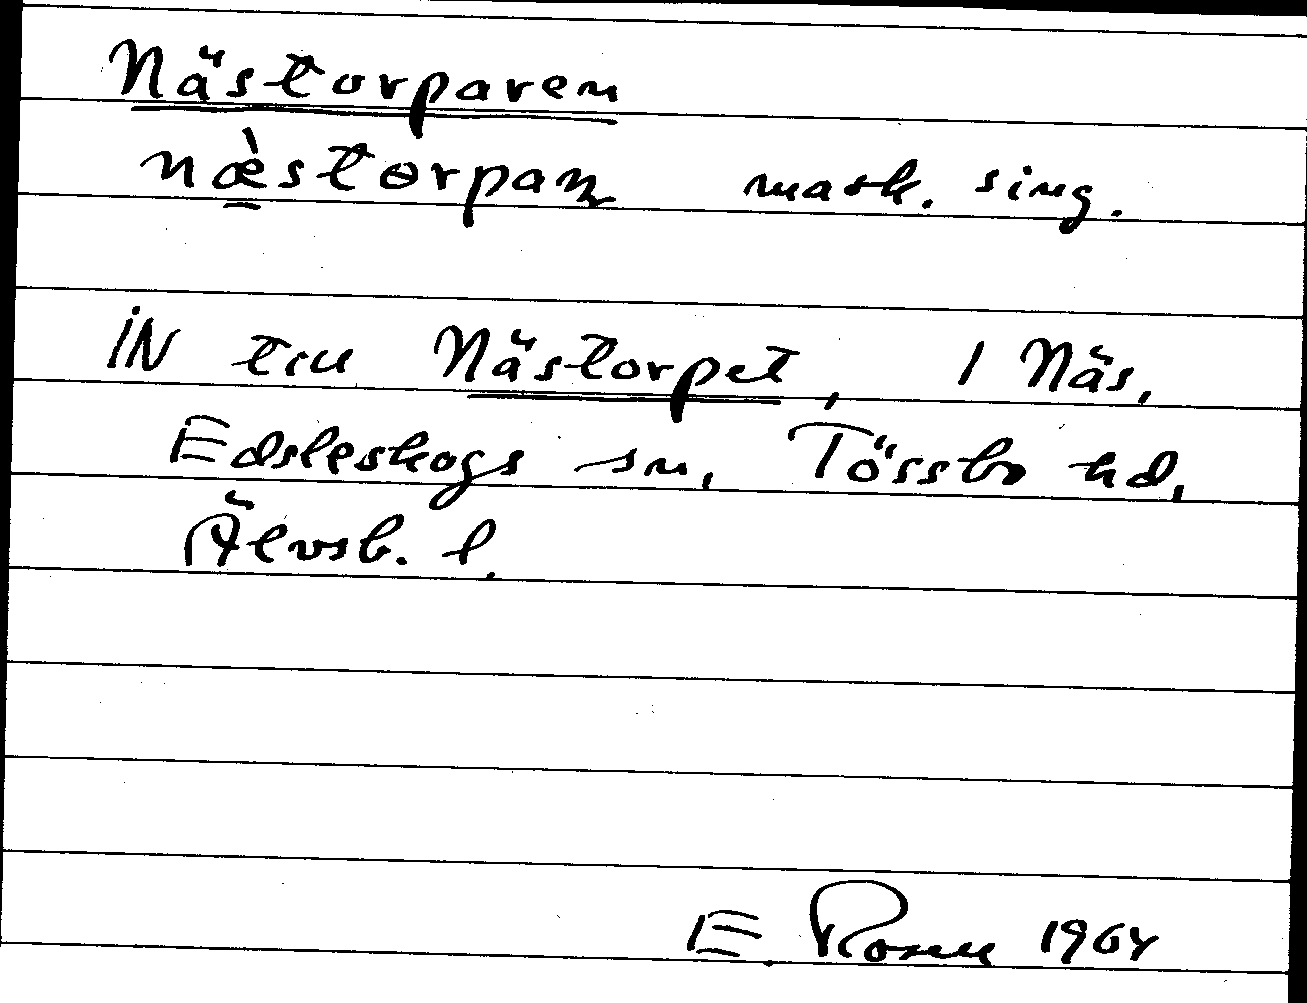 Nästorparen
næ̀storpaɳ mask. sing.
IN till Nästorpet, 1 Näs,
Edsleskogs sn, Tössbo hd,
Älvsb. l.
E. Rosen 1964